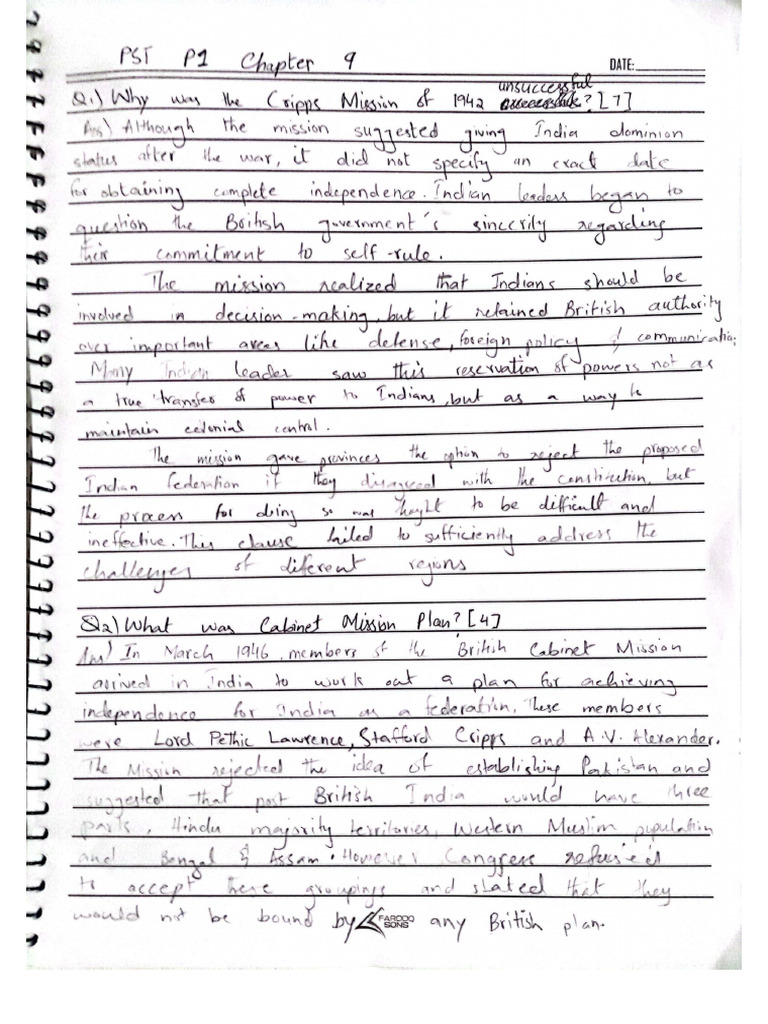 PST P1 Chapter 9
DATE:
Q.1) Why was the Cripps Mission of 1942 unsuccessful? [7]
Ans) Although the mission suggested giving India dominion
status after the war, it did not specify an exact date
for obtaining complete independence. Indian leaders began to
question the British government's sincerily regarding
their commitment to self-rule.
The mission realized that Indians should be
involved in decision-making, but it retained British authority
over important areas like defense, foreign policy & communicatio
Many Indian leader saw this reservation of powers not as
a true transfer of power to Indians, but as a way to
maintain colonial control.
The mission gave provinces the option to reject the proposed
Indian federation if they disagreed with the constitution, but
the process for doing so was thoght to be difficult and
ineffective. This clause failed to sufficiently address the
challenges of diferent regions
Q2) What was Cabinet Mission Plan? [4]
Ans) In March 1946, members of the British Cabinet Mission
arrived in India to work out a plan for achieving
independence for India as a federation. These members
were Lord Pethic Lawrence, Stafford Cripps and A.V. Alexander.
The Mission rejected the idea of establishing Pakistan and
suggested that post British India would have three
parts, Hindu majority territories, Western Muslim population
and Bengal & Assam. However Congress refused
to accept these groupings and stated that they
would not be bound by FAROOQ SONS any British plan.